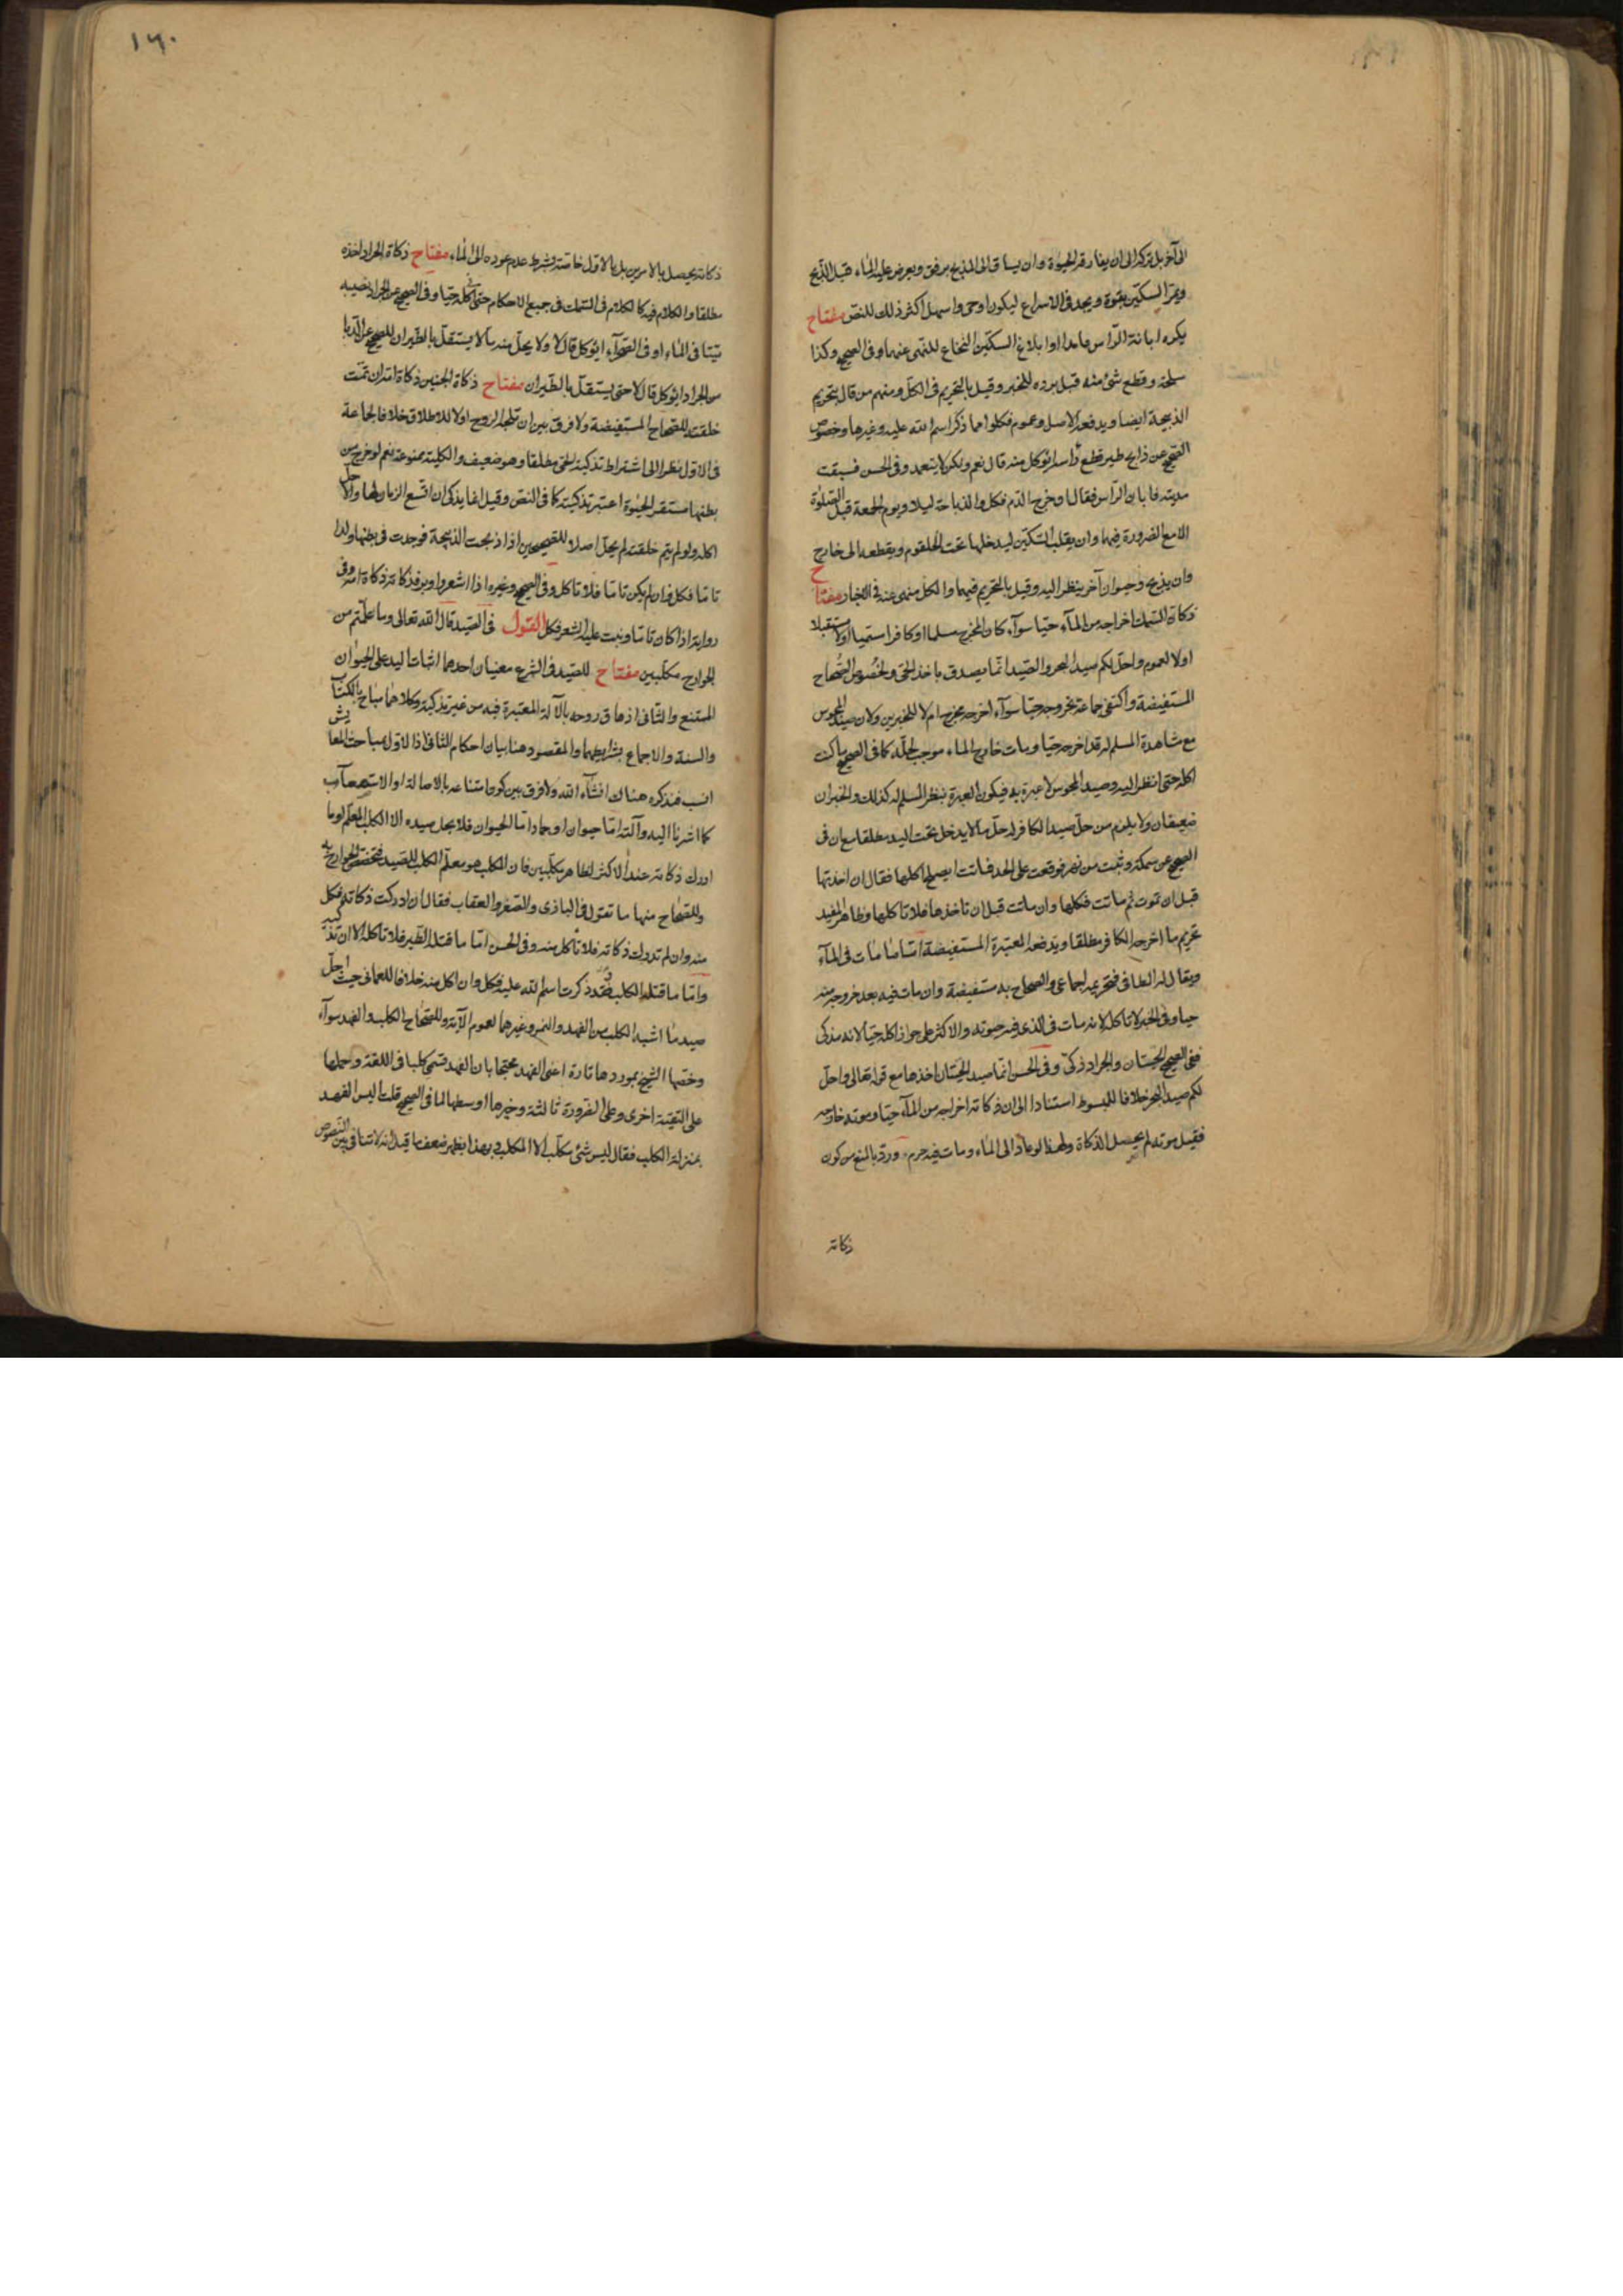 الى آخر بل تركه الى ان يفارقه الحيوة وان يساق الى المذبح برفق ويعرض عليه الماء قبل الذبح
ويمر السكين بقوة ويجد فى الاسراع ليكون اوحى واسهل اكثر ذلك للنص مفتاح
يكره ابانة الراس عامدا او ابلاغ السكين النخاع للنهى عنهما وفى الصحيح وكذا
سلخه وقطع شئ منه قبل برده للخبر وقيل بالتحريم فى الكل ومنهم من قال بتحريم
الذبيحة ايضا ويدفعه الاصل وعموم فكلوا مما ذكر اسم الله عليه وغيرها وخصوص
الصحيح عن ذابح طير قطع راسه ايؤكل منه قال نعم ولكن لا يتعمد وفى الحسن فسبقت
مديته فابان الراس فقال اذا خرج الدم فكل والذباحة ليلا ويوم الجمعة قبل الصلوة
الا مع الضرورة فيهما وان يقلب السكين ليدخلها تحت الحلقوم ويقطعه الى خارج
وان يذبح وحيوان آخر ينظر اليه وقيل بالتحريم فيهما والكل منهى عنه فى الاخبار مفتاح
ذكاة السمك اخراجه من الماء حيا سواء كان المخرج مسلما او كافرا سمى او لا مستقبلا
اولا لعموم واحل لكم صيد البحر والصيد انما يصدق باخذ الحى ولخصوص الصحاح
المستفيضة واكتفى جماعة بخروجه حيا سواء اخرجه مخرج ام لا للخبرين ولان صيد المجوس
مع مشاهدة المسلم له قد اخرجه حيا ومات خارج الماء موجب لحله كما فى الصحيح ما كنت
اكله حتى انظر اليه وصيد المجوس لا عبرة به فيكون العبرة بنظر المسلم له كذلك والخبران
ضعيفان ولا يلزم من حل صيد الكافر له حل ما لا يدخل تحت اليد مطلقا مع ان فى
الصحيح عن سمكة وثبت من نهر فوقعت على الجد فماتت ايصلح اكلها فقال ان اخذتها
قبل ان تموت ثم ماتت فكلها وان ماتت قبل ان تاخذها فلا تاكلها وظاهر المفيد
تحريم ما اخرجه الكافر مطلقا ويدفعه المعتبرة المستفيضة اما ما مات فى الماء
ويقال له الطافى فتحريمه اجماعى والصحاح به مستفيضة وان مات فيه بعد خروجه منه
حيا وفى الخبر لا تاكله لانه مات فى الذى فيه حيوته والاكثر على جواز اكله حيا لانه مذكى
ففى الصحيح الحيتان والجراد ذكى وفى الحسن انما صيد الحيتان اخذها مع قوله تعالى واحل
لكم صيد البحر خلافا للمبسوط استنادا الى ان ذكاته اخراجه من الماء حيا وموته خارجه
فقبل موته لم يحصل الذكاة ولهذا لو عاد الى الماء ومات فيه حرم ورد بالمنع من كون
ذكاته
١٦٠
ذكاته يحصل بالامرين بل بالاول خاصة بشرط عدم عوده الى الماء مفتاح ذكاة الجراد اخذه
مطلقا والكلام فيه كالكلام فى السمك فى جميع الاحكام حتى اكله حيا وفى الصحيح عن الجراد نصيبه
ميتا فى الماء او فى الصحراء ايؤكل قال لا ولا يحل منه ما لا يستقل بالطيران للصحيح عن الدبا
من الجراد ايؤكل قال لا حتى يستقل بالطيران مفتاح ذكاة الجنين ذكاة امه ان تمت
خلقته للصحاح المستفيضة ولا فرق بين ان تلجه الروح او لا للاطلاق خلافا لجماعة
فى الاول نظرا الى اشتراط تذكية الحى مطلقا وهو ضعيف والكلية ممنوعة نعم لو خرج من
بطنها مستقر الحيوة اعتبر تذكيته كما فى النص وقيل انما يذكى ان اتسع الزمان لها والا حل
اكله ولو لم يتم خلقته لم يحل اصلا للصحيحين اذا ذبحت الذبيحة فوجدت فى بطنها ولدا
تاما فكل فان لم يكن تاما فلا تاكل وفى الصحيح وغيره اذا اشعر واوبر فذكاته ذكاة امه وفى
رواية اذا كان تاما ونبت عليه الشعر فكل القول فى الصيد قال الله تعالى وما علمتم من
الجوارح مكلبين مفتاح للصيد فى الشرع معنيان احدهما اثبات اليد على الحيوان
الممتنع والثانى ازهاق روحه بالآلة المعتبرة فيه من غير تذكية وكلاهما مباح بالكتاب
والسنة والاجماع بشرايطهما والمقصود هنا بيان احكام الثانى اذ الاول بمباحث المعايش
انسب فنذكره هناك انشاء الله ولا فرق بين كون امتناعه بالاصالة او الاستصعاب
كما اشرنا اليه وآلته اما حيوان او جماد اما الحيوان فلا يحل صيده الا الكلب المعلم او ما
ادرك ذكاته عند الاكثر لظاهر مكلبين فان الكلب هو معلم الكلب للصيد فتختص الجوارح به
وللصحاح منها ما تقول فى البازى والصقر والعقاب فقال ان ادركت ذكاته فكل
منه وان لم تدرك ذكاته فلا تاكل منه وفى الحسن اما ما قتله الطير فلا تاكله الا ان تذكيه
واما ما قتله الكلب وقد ذكرت اسم الله عليه فكل وان اكل منه خلافا للعمانى حيث احل
صيد ما اشبه الكلب من الفهد والنمر وغيرهما لعموم الآية وللصحاح الكلب والفهد سواء
وخصها الشيخ بموردها تارة اعنى الفهد محتجا بان الفهد تسمى كلبا فى اللغة وحملها
على التقية اخرى وعلى الضرورة ثالثة وخيرها اوسطها لما فى الصحيح قلت اليس الفهد
بمنزلة الكلب فقال ليس شئ مكلب الا الكلب وبهذا يظهر ضعف ما قيل انه لا تنافى بين النصوص